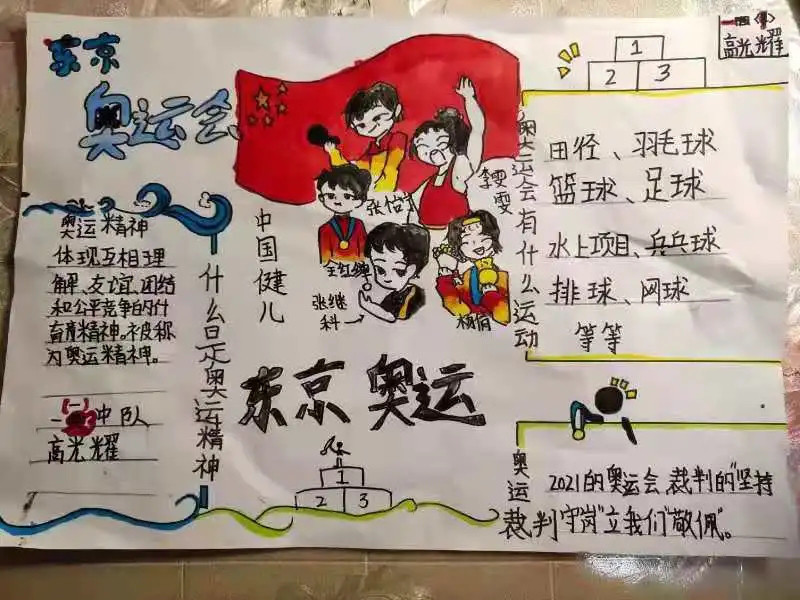 东京
奥运会
奥运精神
体现互相理
解、友谊、团结
和公平竞争的什
育育精神。被称
为奥运精神。
中队
高光耀
什么是奥运精神
中国健儿
张怡宁
李雯雯
全红婵
张继
科→
杨倩
东京奥运
1
2 3
1
2 3
高光耀
奥运会有什么运动
田径、羽毛球
篮球、足球
水上项目、乒乓球
排球、网球
等等
奥运
裁判
2021的奥运会,裁判的"坚持
守岗"立我们"敬佩"。